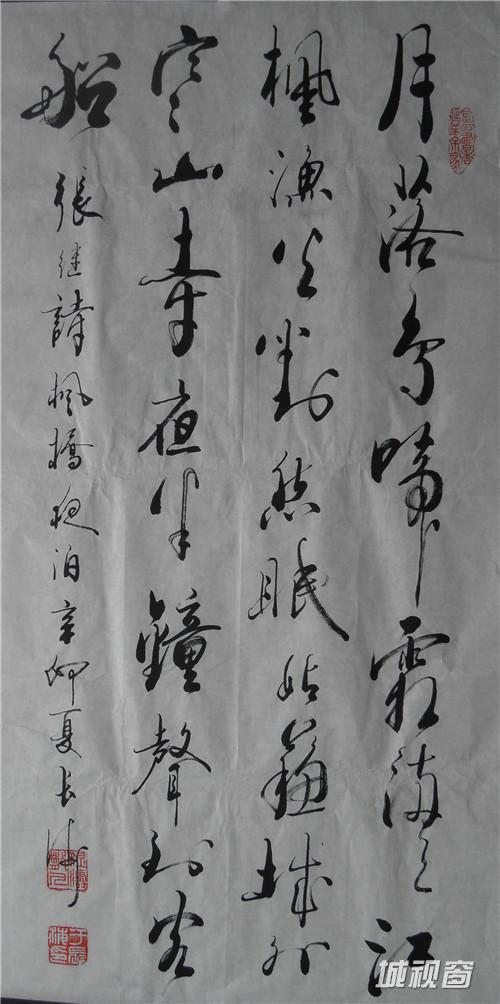 月落烏啼霜滿天江
楓漁火對愁眠姑蘇城外
寒山寺夜半鐘聲到客
船
張继詩楓橋夜泊辛卯夏長
城视窗